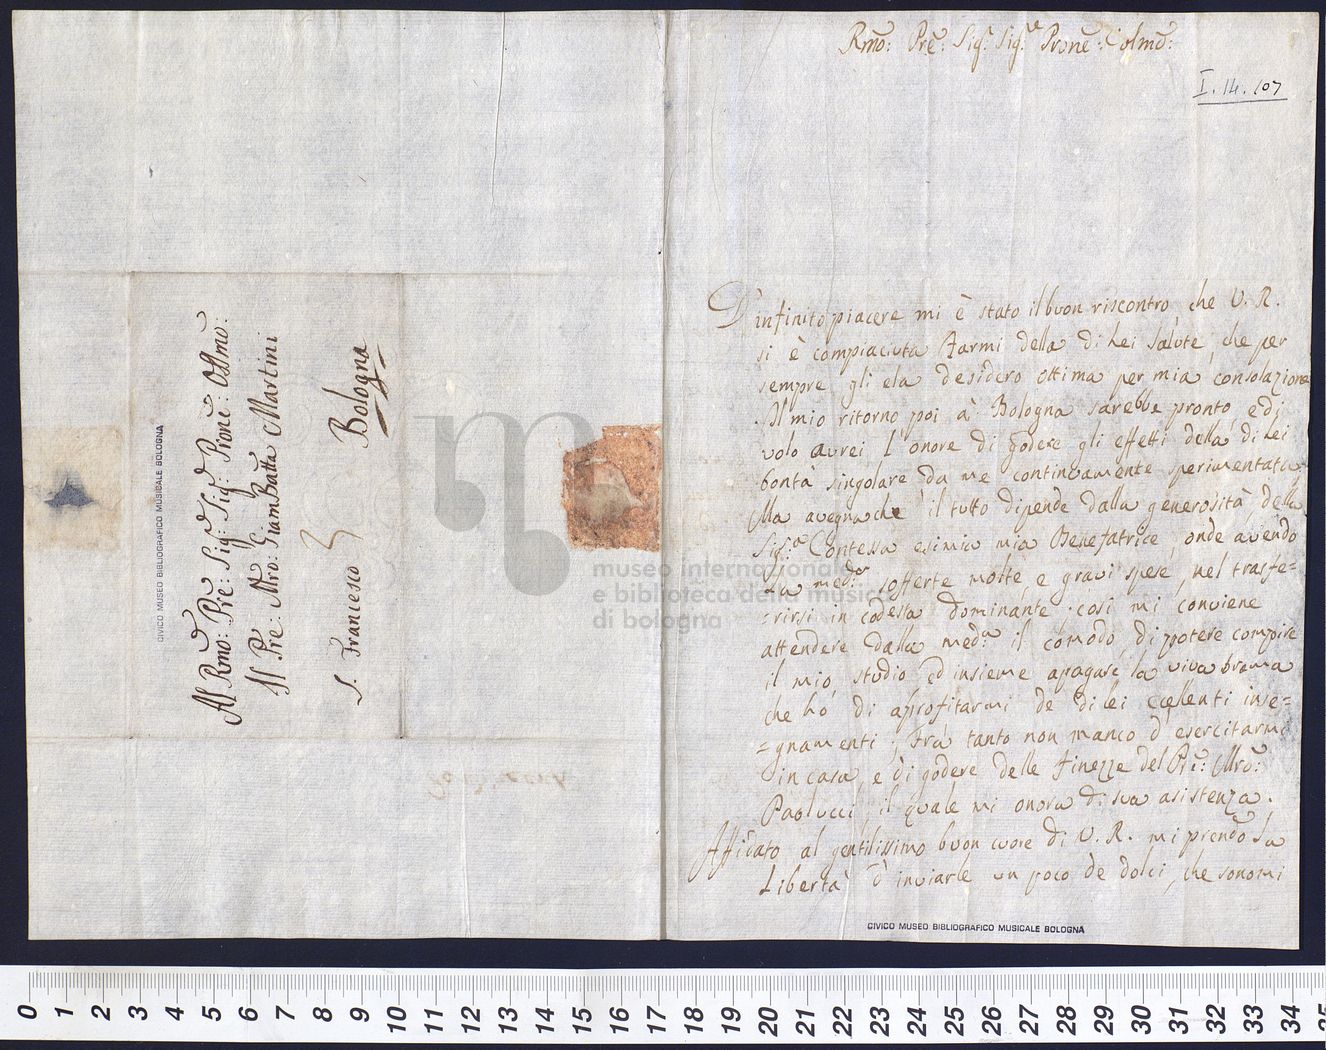 Al Rmo: Pre: Sig.r Sig.r Prone: Ossmo:
Il Pre: Mro: GiamBatta Martini
S. Francesco
Bologna
CIVICO MUSEO BIBLIOGRAFICO MUSICALE BOLOGNA
museo internazionale
e biblioteca della musica
di bologna
Rmo: Pre: Sig.r Sig.re Prone: Colmo:
I. 14. 107
D'infinito piacere mi è stato il buon riscontro, che V. R.
si è compiaciuta darmi della di Lei salute, che per
sempre gli ela desidero ottima per mia consolazione
Il mio ritorno poi à Bologna sarebbe pronto, e di
volo avrei l'onore di godere gli effetti della di Lei
bontà singolare da me continuamente sperimentata
Ma avegnache il tutto dipende dalla generosità della
Sig.ra Contessa esimia mia Benefatrice, onde avendo
La med.a sofferte molte e gravi spese, nel trasfe=
=rirsi in codesta dominante, così mi conviene
attendere dalla med.a il comodo di potere compire
il mio studio ed insieme apagare la viva brama
che hò di aprofitarmi de di lei ecelenti inse=
=gnamenti; Frà tanto non manco d'esercitarmi
in casa, e di godere delle finezze del Pre: Mro:
Paolucci, il quale mi onora di sua asistenza.
Affidato al gentilissimo buon cuore di V. R. mi prendo la
Libertà d'inviarle un poco de dolci, che sonomi
CIVICO MUSEO BIBLIOGRAFICO MUSICALE BOLOGNA
0 1 2 3 4 5 6 7 8 9 10 11 12 13 14 15 16 17 18 19 20 21 22 23 24 25 26 27 28 29 30 31 32 33 34 35